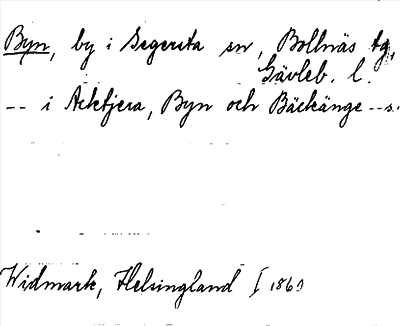 Byn, by i Segersta sn, Bollnäs tg,
Gävleb. l.
-- i Acktjera, Byn och Bäckänge --s.
Widmark, Helsingland I 1860